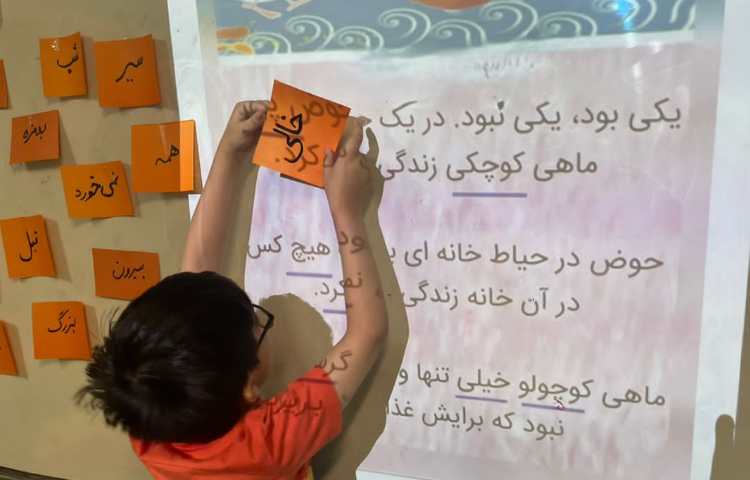 یکی بود، یکی نبود. در یک حوض پر
ماهی کوچکی زندگی می‌کرد.
حوض در حیاط خانه ای بود هیچ کس
در آن خانه زندگی نمی‌کرد.
ماهی کوچولو خیلی تنها و گرسنه
نبود که برایش غذا بریزد
خالی
سیر
شب
همه
نمی خورد
بیرون
بزرگ